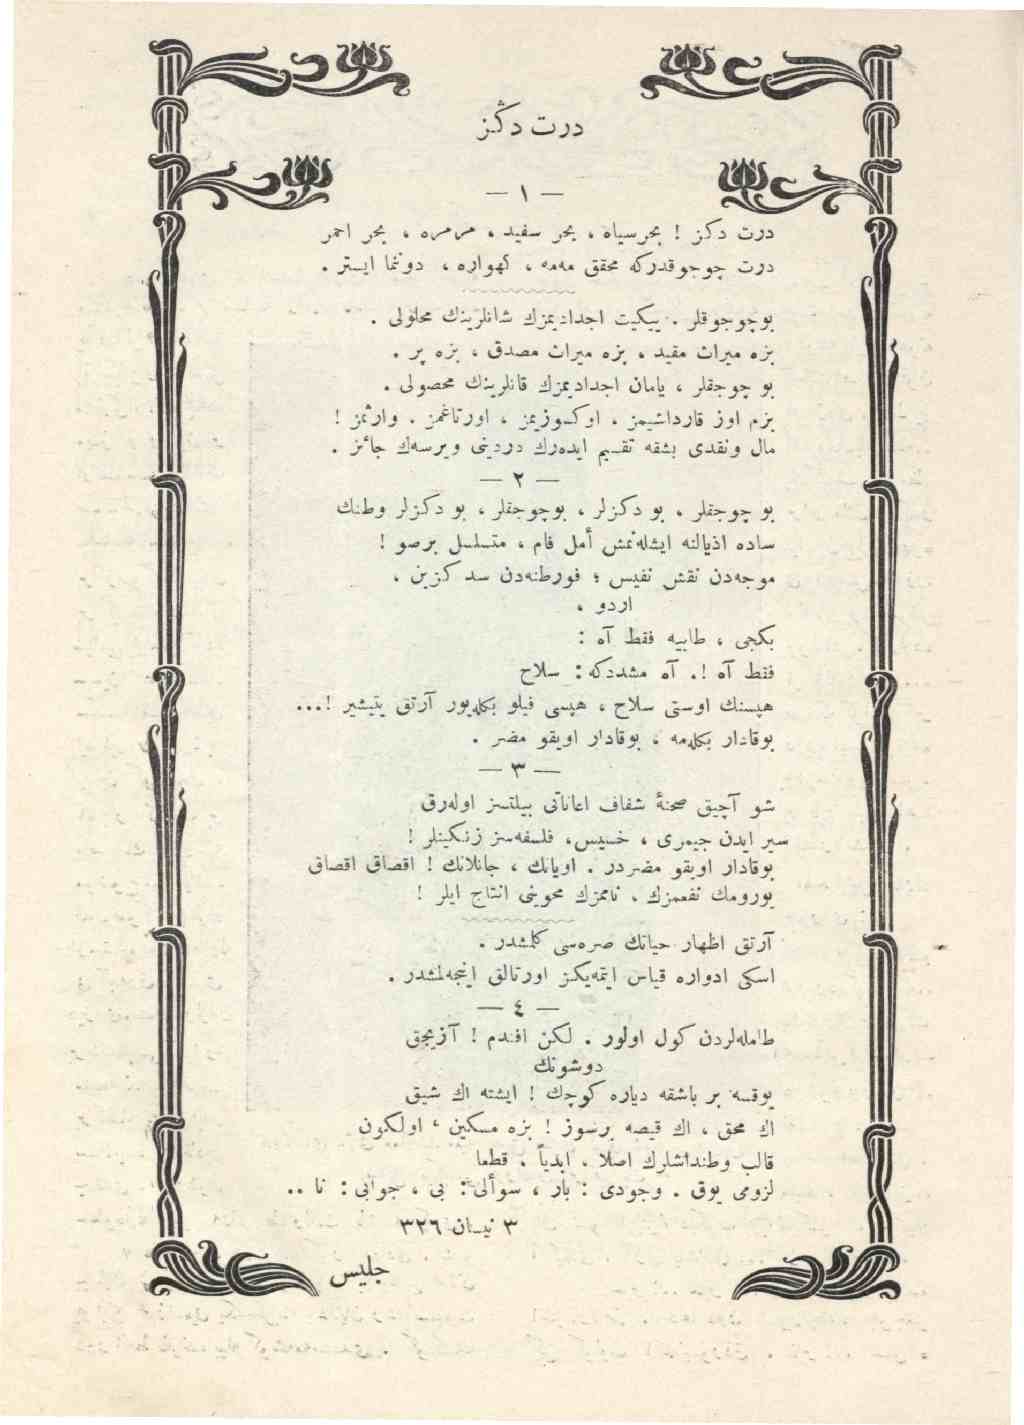 درت دڭـز
— ١ —
درت دكز ! بحرسياه ، بحر سفيد ، مرمره ، بحر احمر
درت چوجوقدركه محقق مه‌مه ، كهواره ، دونما ايستر .
بوچوجوقلر . بيكيت اجداديمزك شانلرينك محلولى .
بزه ميراث مقيد ، بزه ميراث مصدق ، بزه پر .
بو چوجقلر ، يامان اجداديمزك قانلرينك محصولى .
بزم اوز قارداشيمز . اوكسوزيمز ، اورتاغمز . وارثمز !
مال ونقدى بشقه تقسيم ايده‌رك دردينى ويرسه‌ك جائز .
— ٢ —
بو چوجقلر ، بو دكزلر ، بوچوجقلر ، بو دكزلر وطنك
ساده اذيالنه ايشله‌نمش أمل فام ، متسلسل برصو !
موجه‌دن نقش نفيس ؛ فورطنه‌دن سد كزين ،
اردو ،
بكجى ، طابيه فقط آه :
فقط آه !. آه مشددكه : سلاح
هپسنك اوستى سلاح ، هپسى فيلو بكله‌يور آرتق يتيشير !...
بوقادار بكله‌مه ، بوقادار اويقو مضر .
— ٣ —
شو آچيق صحنهٔ شفاف اعاناتى بيلتسز اوله‌رق
سير ايدن جيمرى ، خسيس، فلسفه‌سز زنكينلر !
بوقادار اويقو مضردر . اويانك ، جانلانك ! اقصاق اقصاق
يورومك نفعمزك ، ناممزك محوينى انتاج ايلر !
آرتق اظهار حياتك صره‌سى كلمشدر .
اسكى ادواره قياس ايتمه‌يكز اورتالق اينجه‌لمشدر .
— ٤ —
طامله‌لردن كول اولور . لكن افندم ! آزيجق
دوشونك
يوقسه بر باشقه دياره كوچك ! ايشته اك شيق
اك محق ، اك قيصه برسوز ! بزه مسكين ، اولكون
قالب وطنداشلرك اصلا ، ابدياً ، قطعا
لزومى يوق . وجودى : بار ، سوألى : بى ، جوابى : نا ..
٣ نيسان ٣٢٦
جليس